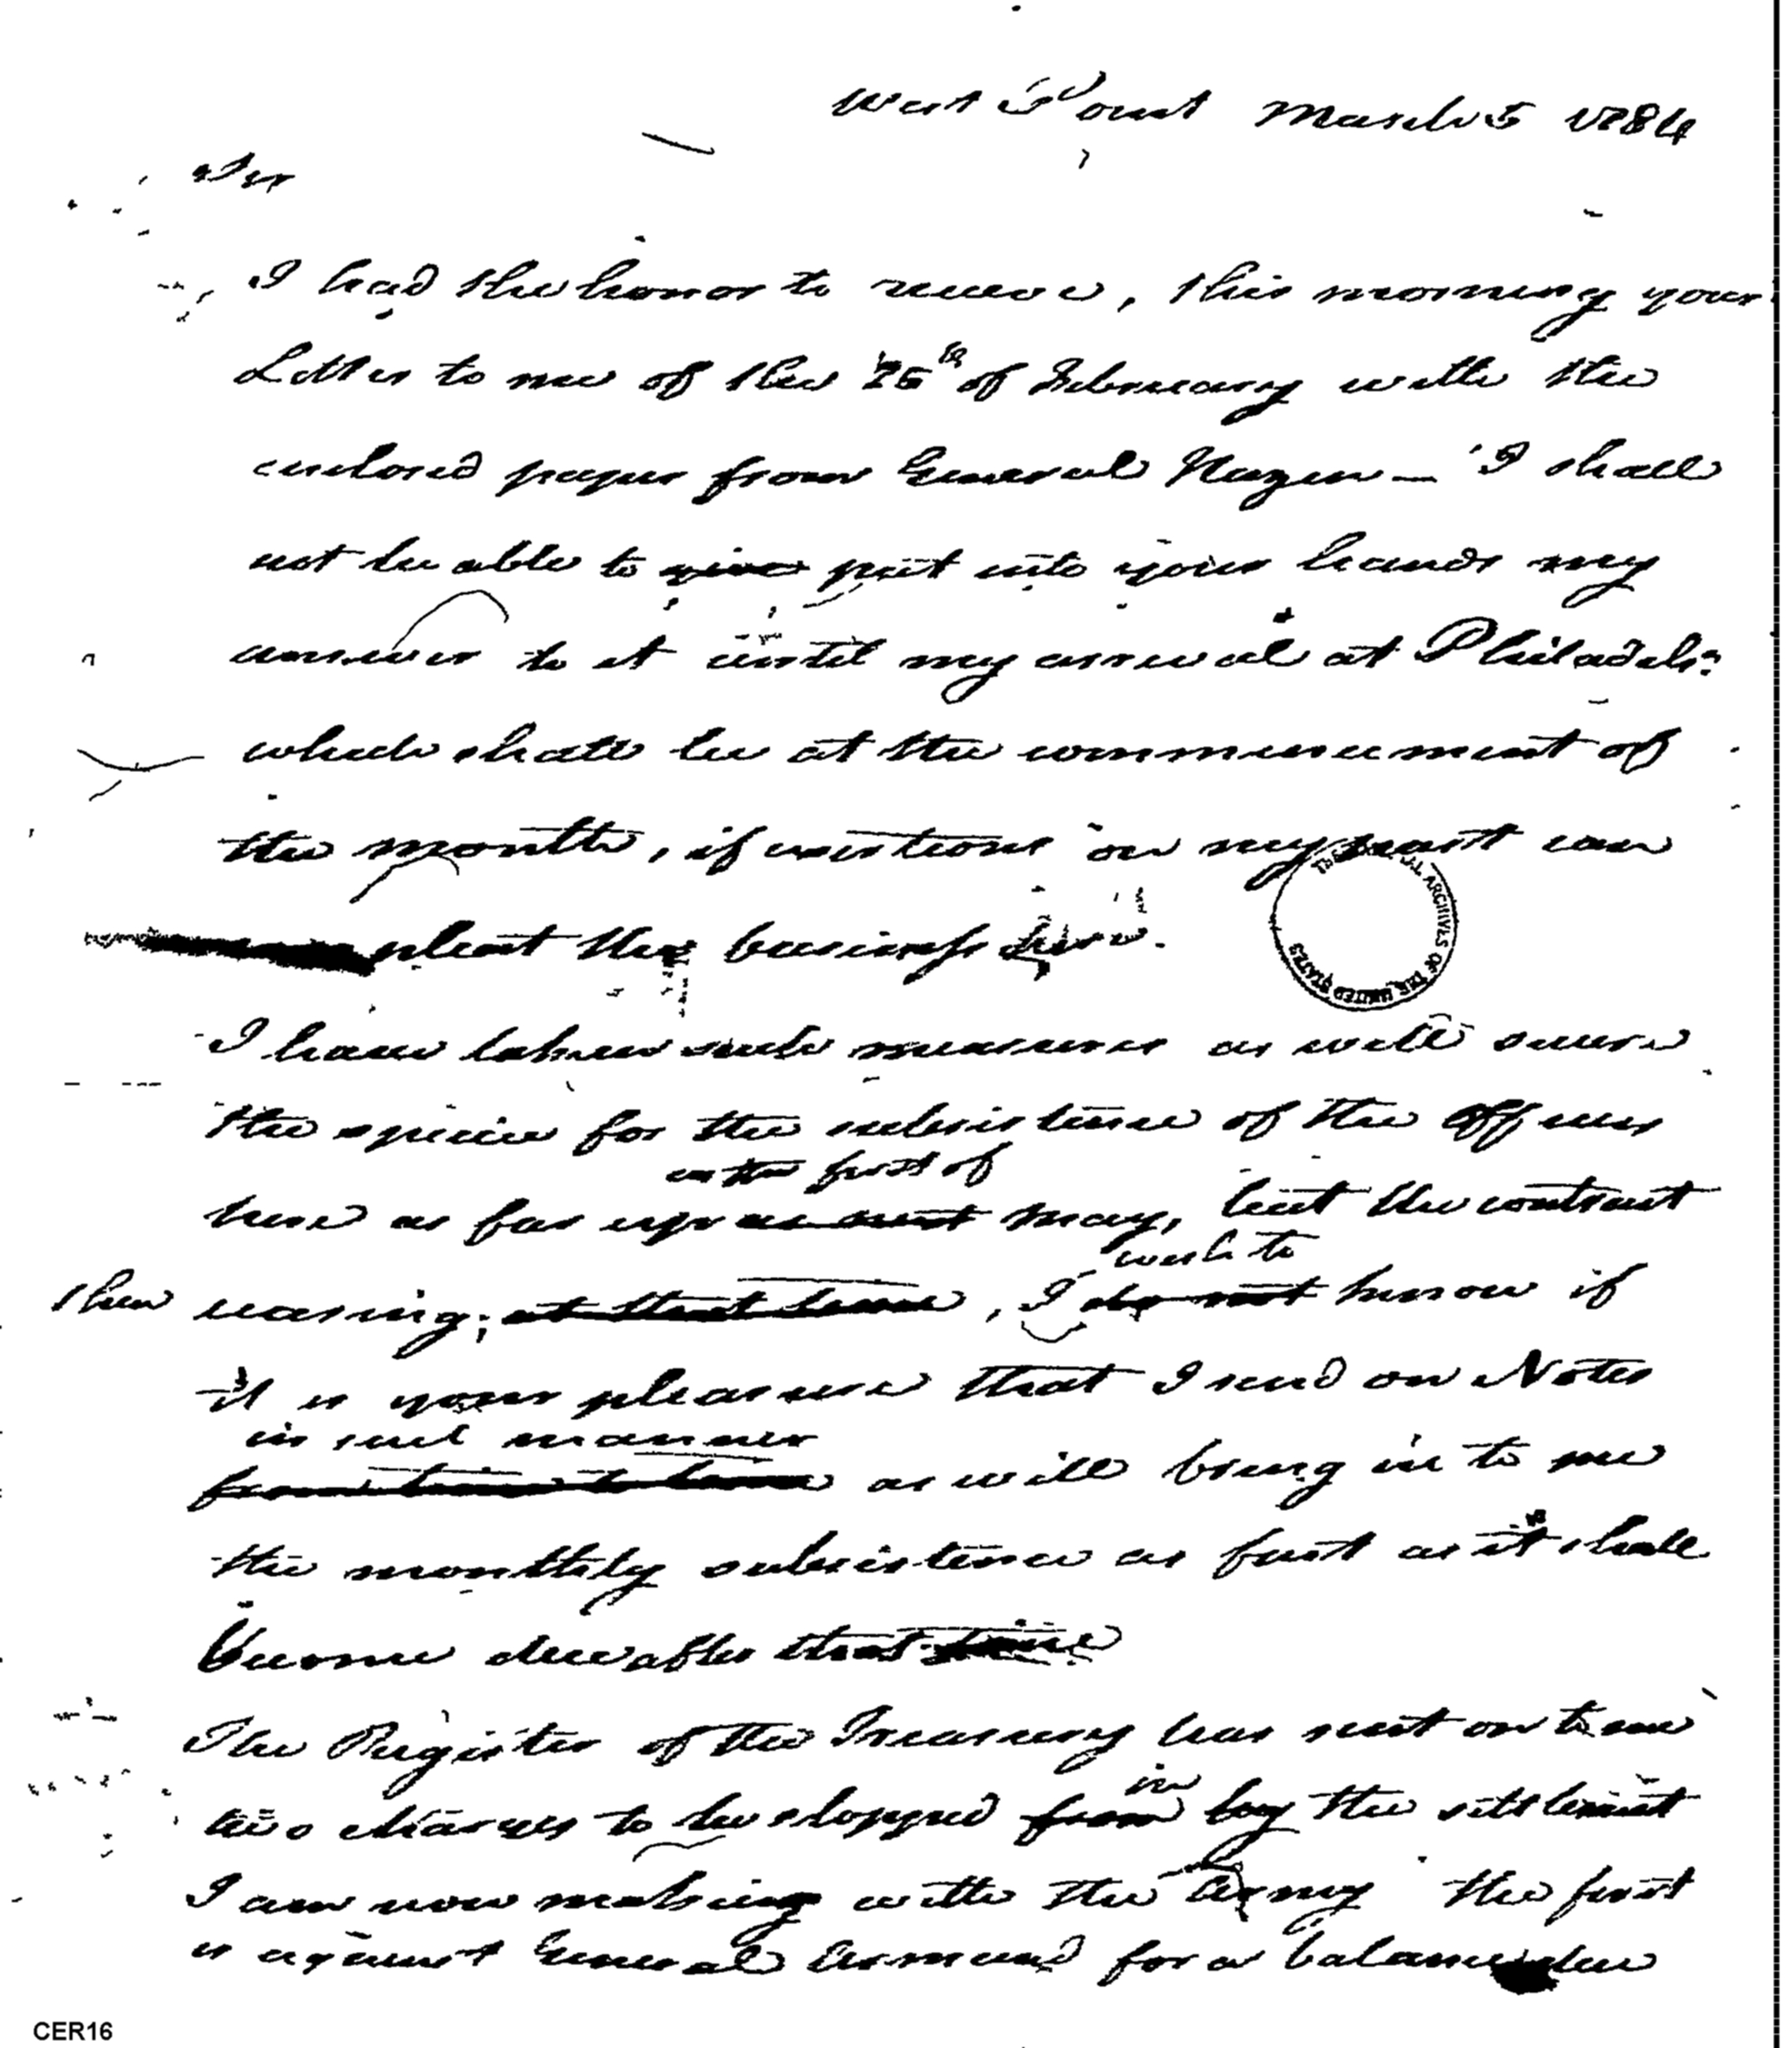 West Point March 5 1784
Sir
I had the honor to receive, this morning your
Letter to me of the 26th of February with the
enclosed paper from General Hazen — I shall
not be able to give put into your hands my
answer to it until my arrival at Philadel:
which shall be at the commencement of
the month, if exertions on my part can
pleat the business here.
THE ARCHIVES OF THE UNITED STATES
I have taken such measures as will secure
the specie for the subsistence of the officers
on the first of
here as far up as May, but the contract
wish to
then ceasing; at that time, I do not know if
it is your pleasure that I send on Notes
in such manner
from time to time as will bring in to me
the monthly subsistence as fast as it shall
become dueable that time
The Register of the Treasury has sent on to me
in
two charges to be stopped from by the settlement
I am now making with the Army the first
is against General Armand for a balance due
CER16